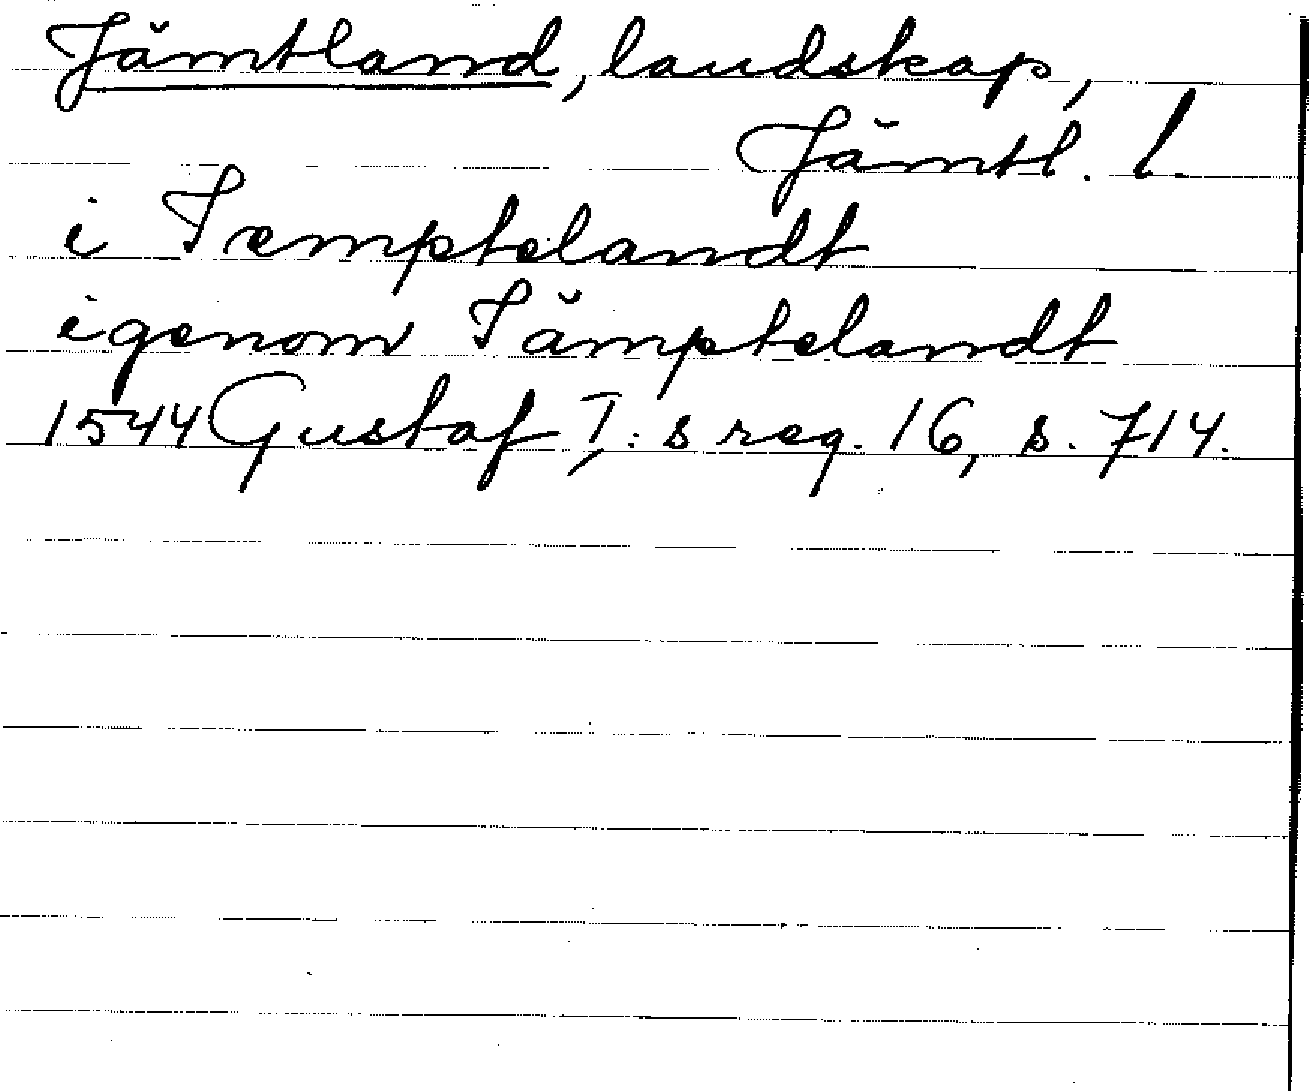 Jämtland, landskap,
Jämtl. l.
i Iemptelandt
igenom Iämptelandt
1544 Gustaf I:s reg. 16, s. 714.